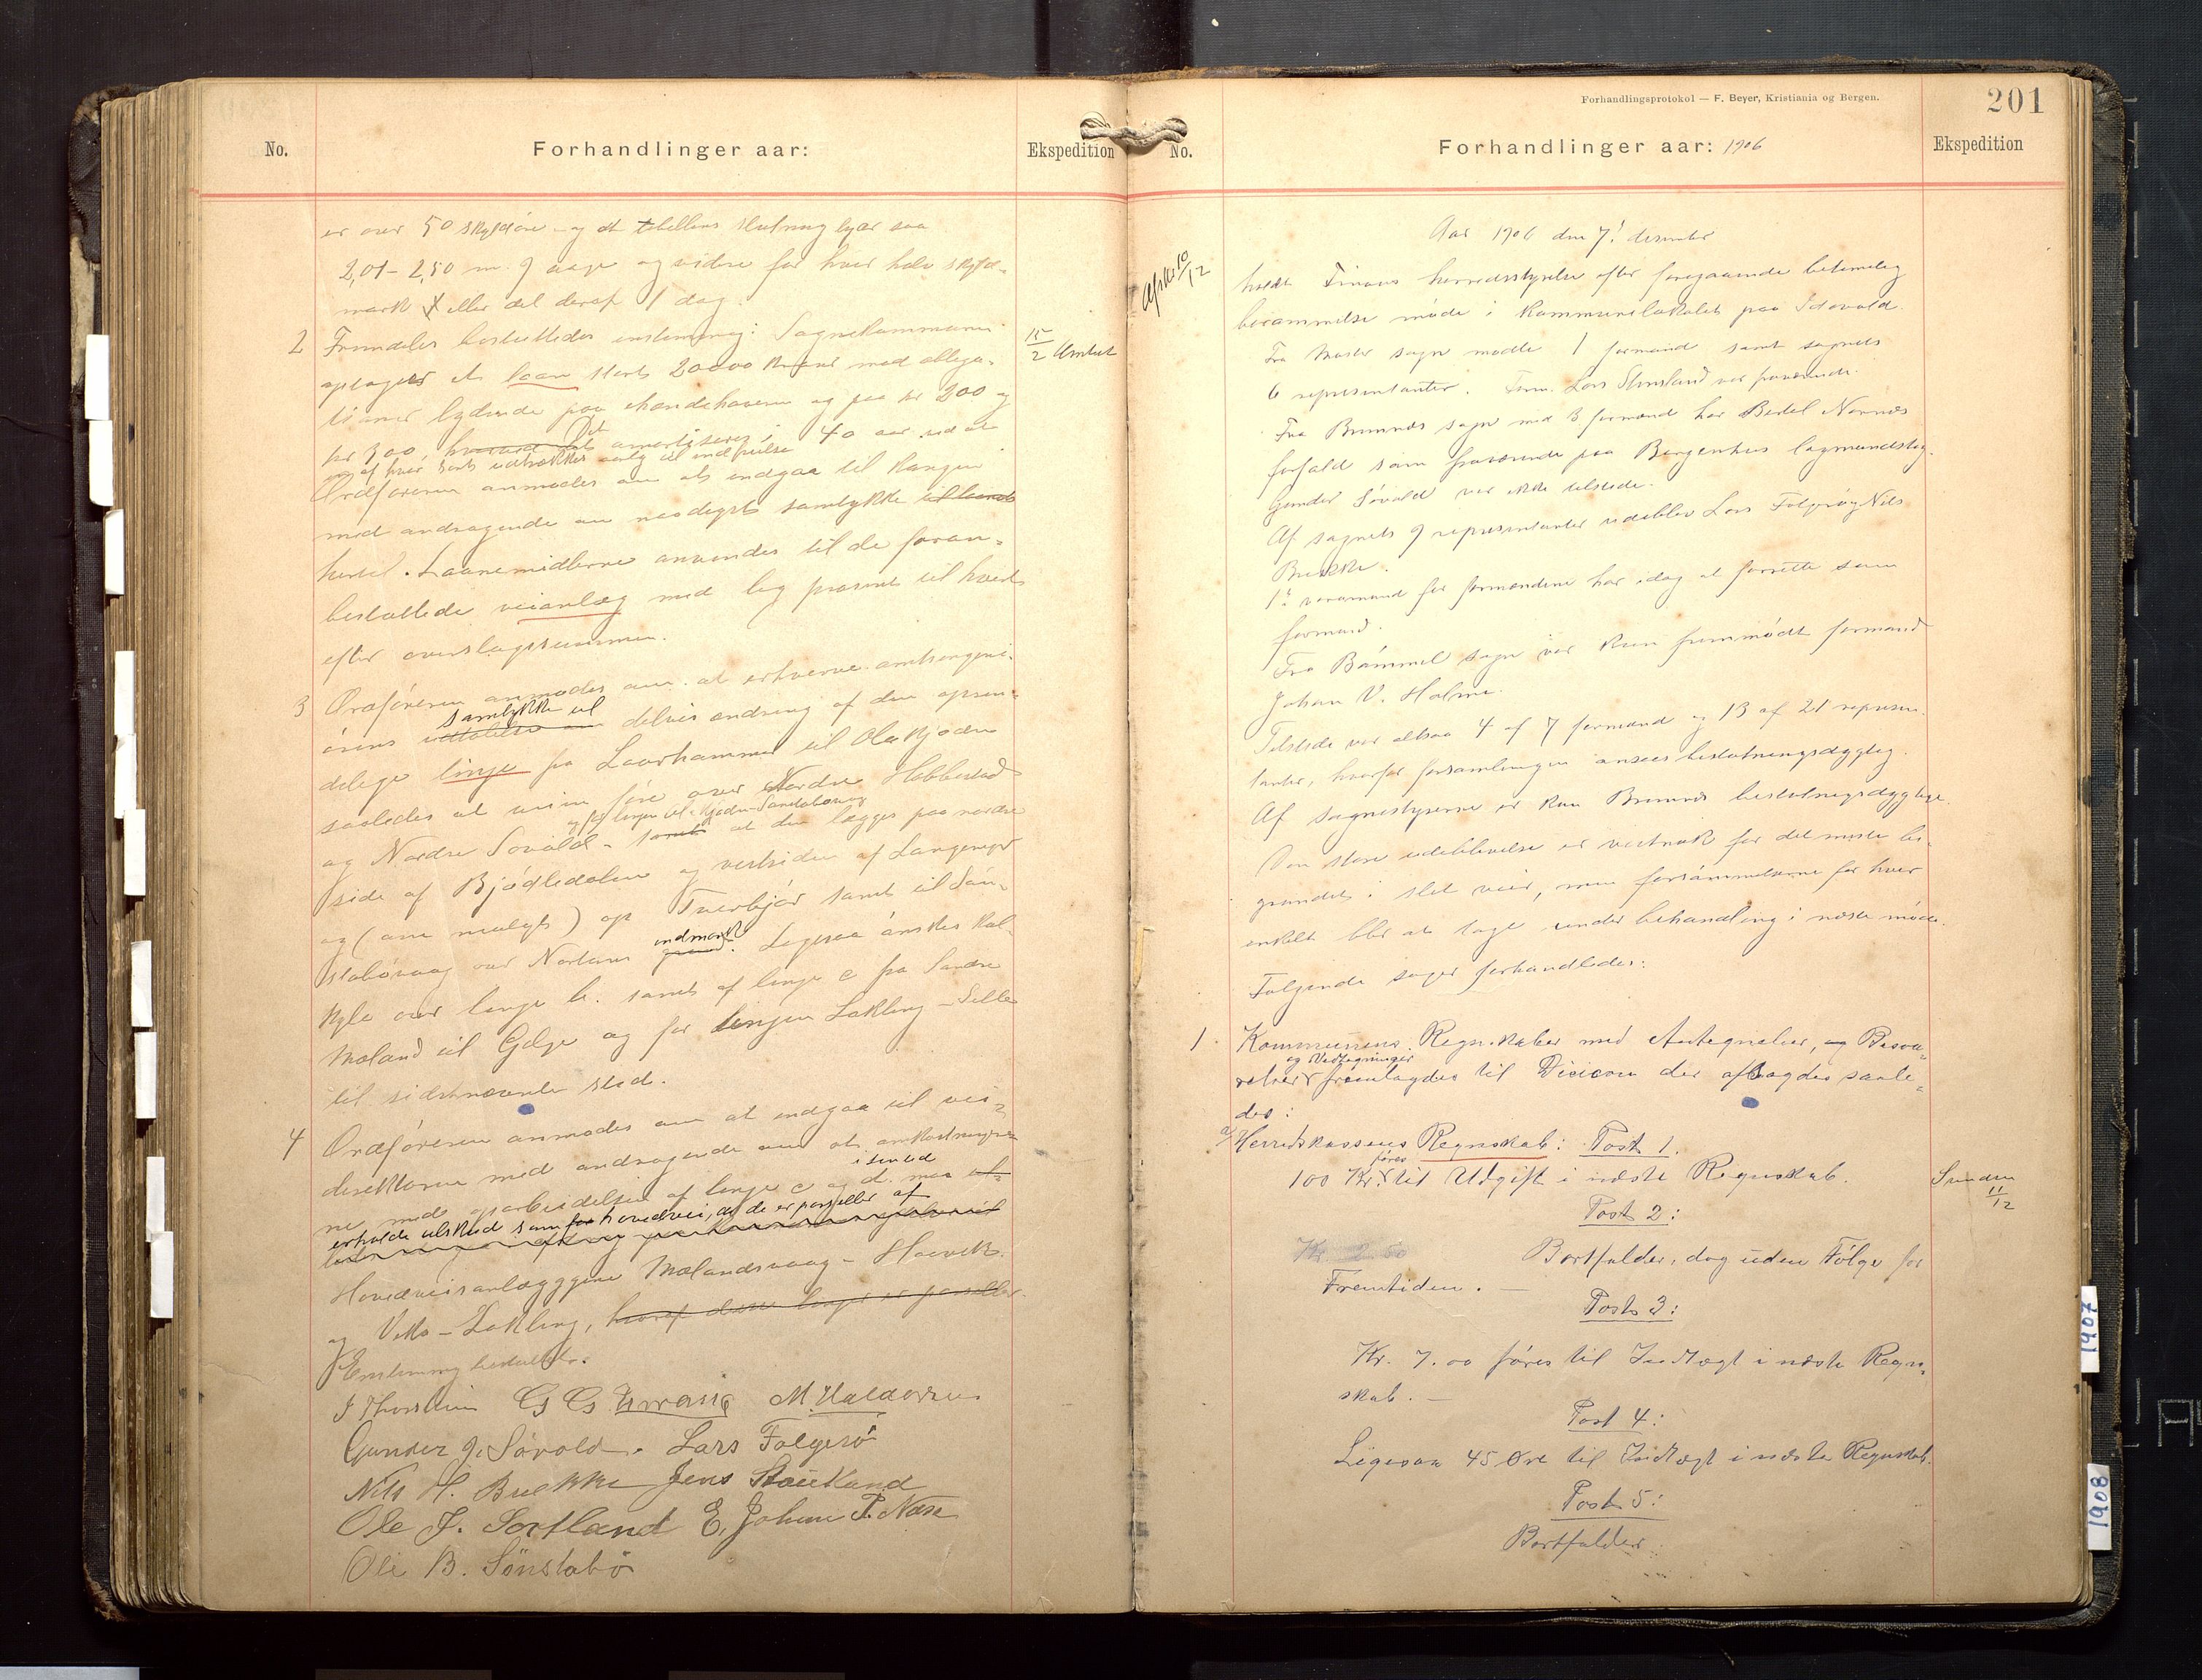 No.
Forhandlinger aar:
Ekspedition
er over 50 skyldøre - og at tabellens slutning lyder saa
2,01 - 2,50 m. 9 dage og videre for hver halv skyld-
mark eller del deraf 1 dag.
2 Fremdeles besluttedes enstemmig: Sognekommunen
optager et laan stort 20000 kroner med obliga-
tioner lydende paa ihændehaveren og paa kr 200 og
kr 300, hvoraf Det amortiseres i 40 aar ved at
og af hver sort udtrækkes aarlig til indfrielse
Ordføreren anmodes om at indgaa til kongen
med andragende om naadigst samtykke til laanet
hertil. Laanemidlerne anvendes til de foran-
besluttede veianlæg med lig procent til hvert
efter overslagssummen.
15/2 Amtet
3 Ordføreren anmodes om at erhverve amtsingeni-
samtykke til
ørens udtalelse om delvis ændring af den opsen-
delige linje fra Laurhammer til Olakjødn
saaledes at veien føre over Nordre Hebbestad
og for linjen til Kjødn-Sønstabøvaag
og Nordre Søvold - samt at den lægges paa nordre
side af Bjødledalen og vestsiden af Langevand
og (om muligt) op Tverbjør samt til Søn-
stabøvaag over Nortuns indmark. Ligesaa ønskes kal-
kyle over linje b. samt af linje c fra Søndre
Mæland til Gilje og for linjen Løkling - Sille
til sidstnævnte sted.
4 Ordføreren anmodes om at indgaa til vei-
direktøren med andragende om at omkostninger-
i sin tid
ne med oparbeidelsen af linje c og d. maa
erholde tilskud som for hovedvei, da de er parseller af
Hovedveisanlæggene Mælandsvaag - Hovik
og Viks - Løkling, hvoraf disse linjer er parseller.
Enstemmig besluttet.
J Thorstein G G Urrang M. Haldorsen
Gunder J. Søvold. Lars Folgerø
Nils H. Brekke Jens Stautland
Ole J. Sortland E. Johan P. Næse
Ole B. Sønstabø
Forhandlingsprotokol — F. Beyer, Kristiania og Bergen.
201
No.
Forhandlinger aar: 1906
Ekspedition
Afskr 10/12
Aar 1906 den 7. desember
holdt Finaas herredsstyrelse efter foregaaende betimelig
berammelse møde i kommunelokalet paa Idavold.
Fra Moster sogn mødte 1 formand samt sognets
6 representanter. Form. Lars Stensland var fraværende.
Fra Bremnes sogn med 3 formænd har Bertel Nornes
forfald som fraværende paa Bergenhus lagmandsting.
Gunder Søvold var ikke tilstede.
Af sognets 9 representanter udeblev Lars Folgerø og Nils
Brekke.
1ste varamand for formændene har idag at forrette som
formand.
Fra Bømmel sogn var kun fremmødt formand
Johan V. Holme.
Tilstede var altsaa 4 af 7 formænd og 13 af 21 represen-
tanter, hvorfor forsamlingen ansees beslutningsdygtig.
Af sognestyrerne er kun Bremnes beslutningsdygtige.
Den store udeblivelse er vistnok for det meste be-
grundet i slet veir, men forsømmelserne for hver
enkelt blir at tage under behandling i næste møde.
Følgende sager forhandledes:
1. Kommunens Regnskaber med Antegnelser, og Besva-
og Vedtegninger
relser fremlagdes til Decision der afsagdes saale-
des:
a/ Herredskassens Regnskab: Post 1.
føres
100 Kr. til Udgift i næste Regnskab.
Sunden 11/12
Post 2:
Kr 2.50 Bortfalder, dog uden Følge for
Fremtiden. —
Post 3:
Kr. 7.00 føres til Indtægt i næste Regn-
skab. —
Post 4:
Ligesaa 45 Øre til Indtægt i næste Regnskab.
Post 5:
Bortfalder
1907
1908